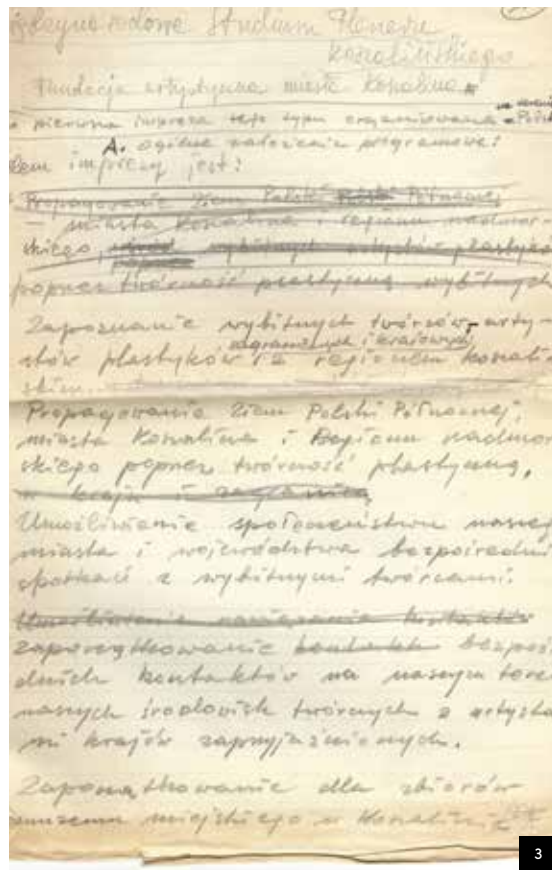 Studium Pleneru
Koszalińskiego
Fundacja artystyczna miasta Koszalina
pierwsza impreza tego typu organizowana na terenie Polski
A. ogólne założenia programowe:
imprezy jest:
Propagowanie Ziem Polski Północnej
– miasta Koszalina i regionu nadmor-
skiego, wybitnych artystów plastyków
poprzez
poprzez twórczość plastyczną wybitnych
Zapoznanie wybitnych twórców – arty-
zagranicznych i krajowych
stów plastyków z regionem koszaliń-
skim.
Propagowanie Ziem Polski Północnej,
miasta Koszalina i Regionu nadmor
skiego poprzez twórczość plastyczną,
w kraju i zagranicą
Umożliwienie społeczeństwu naszeg
miasta i województwa bezpośredni
spotkań z wybitnymi twórcami.
Umożliwienie nawiązania kontaktów
Zapoczątkowanie kontaktów bezpoś
dnich kontaktów na naszym tere
naszych środowisk twórczych z artysta
mi krajów zaprzyjaźnionych.
Zapoczątkowanie dla zbiorów
muzeum miejskiego w Koszalinie
3